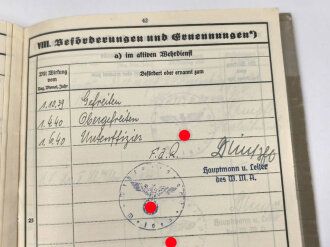 42
VIII. Beförderungen und Ernennungen*)
a) im aktiven Wehrdienst
Mit Wirkung vom
Tag, Monat, Jahr
Befördert oder ernannt zum
1.10.39 Gefreiten
1.4.40 Obergefreiten
1.6.40 Unteroffizier
F.d.R.
Hauptmann u. Leiter
des W.M.A.
23